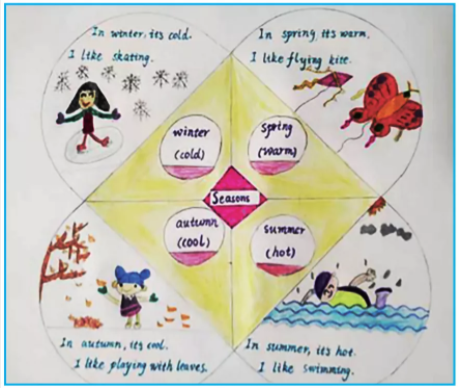 In winter, it's cold.
I like skating.
In spring, it's warm.
I like flying kite.
winter
(cold)
spring
(warm)
Seasons
autumn
(cool)
summer
(hot)
In autumn, it's cool.
I like playing with leaves.
In summer, it's hot.
I like swimming.